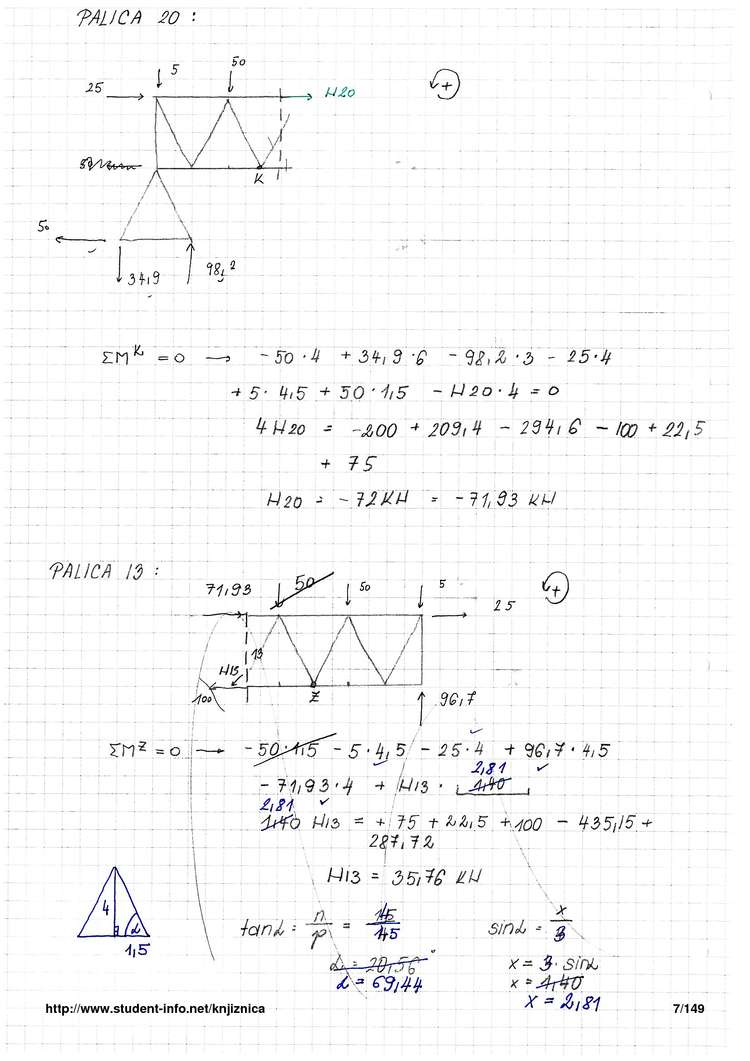 PALICA 20 :
5
50
25
H20
+
K
50
34,9
98,2
ΣM^K = 0 → -50·4 + 34,9·6 - 98,2·3 - 25·4
+ 5·4,5 + 50·1,5 - H20·4 = 0
4 H20 = -200 + 209,4 - 294,6 - 100 + 22,5
+ 75
H20 = -72 KH = -71,93 KH
PALICA 13 :
71,93
50
50
5
25
+
13
H13
100
Z
96,7
ΣM^Z = 0 → -50·1,5 - 5·4,5 - 25·4 + 96,7·4,5
2,81
- 71,93·4 + H13 · 1,40
2,81
1,40 H13 = + 75 + 22,5 + 100 - 435,15 +
287,72
H13 = 35,76 KH
4
α
1,5
tanα = n/p =
sinα = x/3
α = 20,56°
x = 3·sinα
α = 69,44
x = 1,40
x = 2,81
http://www.student-info.net/knjiznica
7/149